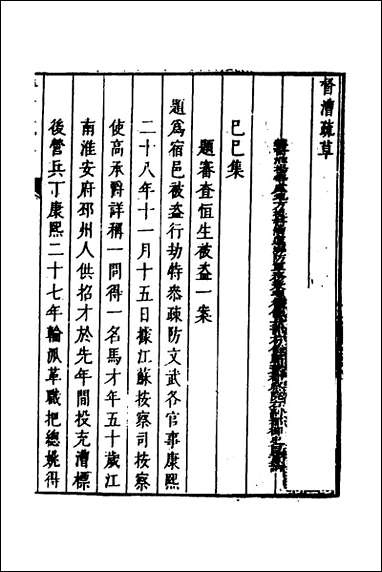 督漕疏草
巳巳集
題審查恒生被盜一案
題爲宿邑被盜行劫特叅疎防文武各官事康熙
二十八年十一月十五日據江蘇按察司按察
使高承爵詳稱一問得一名馬才年五十歲江
南淮安府邳州人供招才於先年間投充漕標
後營兵丁康熙二十七年輪派革職把總姚得